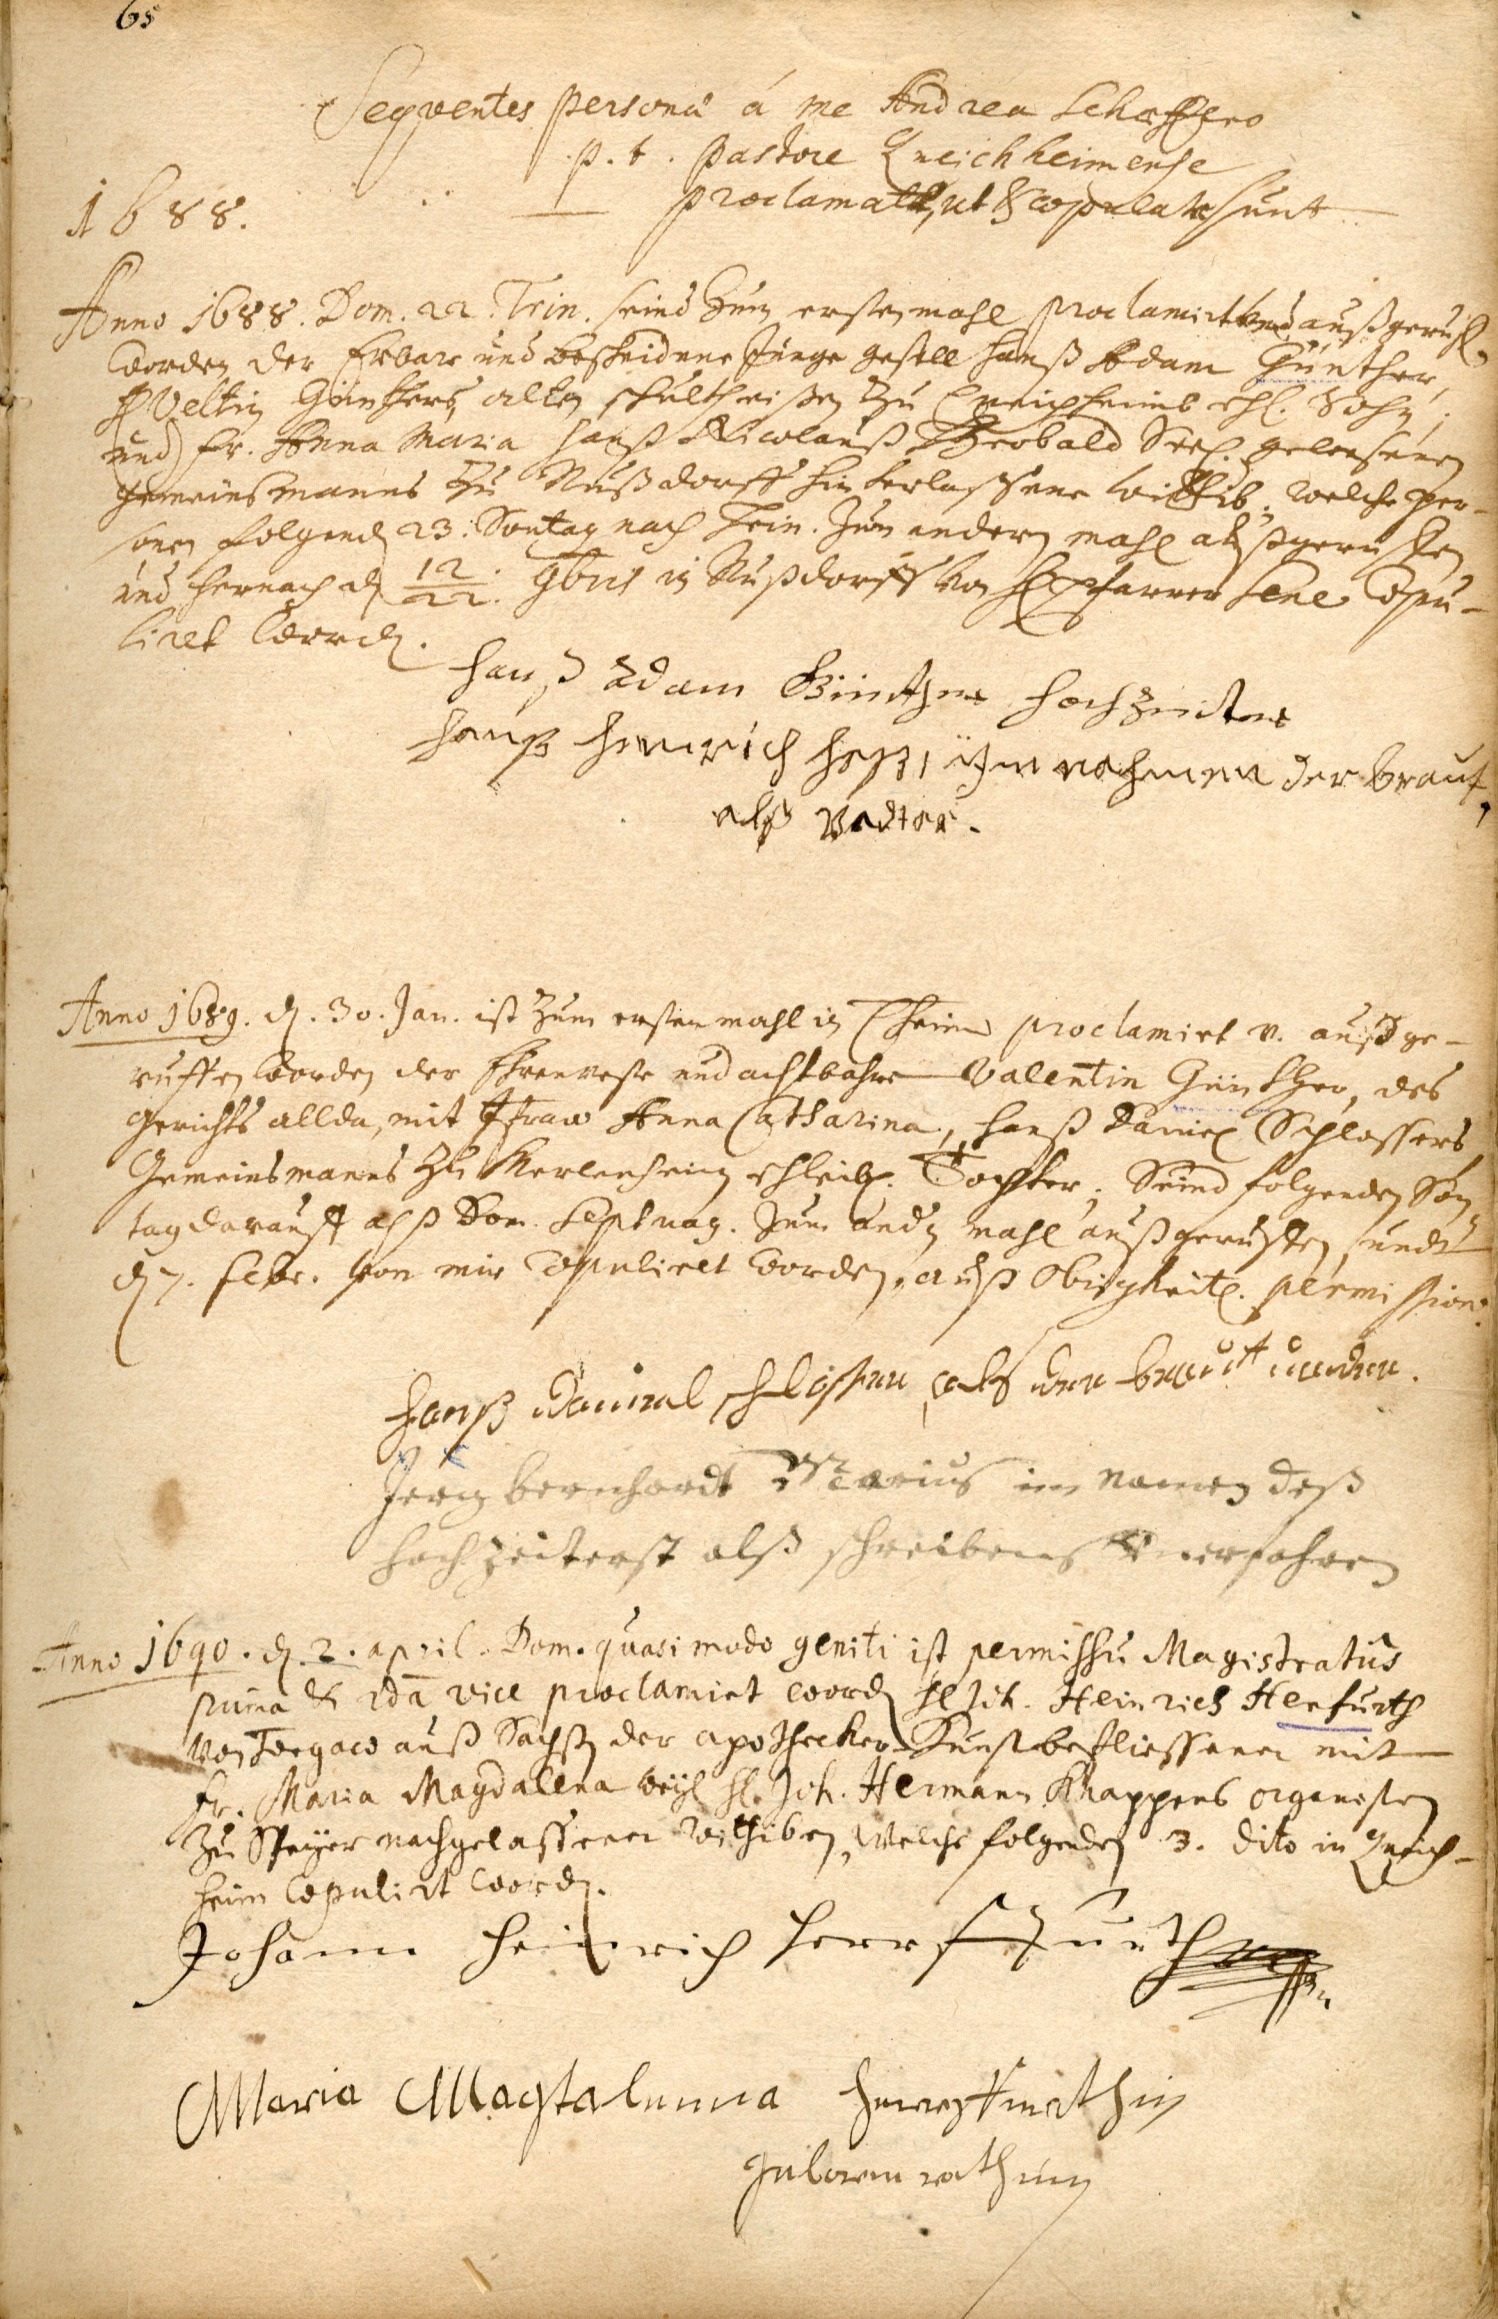 65
Seqventes personæ á me Andrea Schæffero
p. t. pastore Qveichheimense
1688.
proclamatæ, ut & copulatæ sunt
Anno 1688. Dom. 22. Trin. seind zum erstenmahl proclamirt und außgeruff.
worden der Erbare und bescheidene Junge gesell Hanß Adam Günther,
H Veltin Günthers, alten schultheißen zu Queichheimb ehl. Sohn,
und Fr. Anna Maria Hanß Nicolauß Theobald Seel. gewesenen
gemeinsmanns zu Nußdorff hinterlassene wittib, welche per-
sonen folgend 23. Sontag nach Trin. zum andern mahl außgeruffen
und hernach d. 12/22. 9bris in Nußdorff von H Pfarrer Copu-
liret word.
Hanß Adam Günther Hochzeiter
Hanß Henrich Heß, im nahmen der braut,
alß Vadter.
Anno 1689. d. 30. Jan. ist zum erstenmahl in Qheim proclamirt v. auß ge-
ruffen worden der Ehrenveste und achtbahre Valentin Günther, des
Gerichts allda, mit Fraw Anna Catharina, Hanß Daniel Schlossers
Gemeinsmanns zu Merlenheim ehleibl. Tochter. Seind folgenden Son
tag darauff alß Dom. Septuag. zum andn mahl außgeruffen, undt
d 7. Febr. von mir Copuliret worden, auß Obrigkeitl. permission.
Hanß Daniel schlosser, als der braut vader.
Jerg bernhardt im namen deß
hochzeiters alß schreibens unerfahren
Anno 1690. d. 2. april. Dom. quasimodo geniti ist permissu Magistratus
prima & 2dā vice proclamirt word H Joh. Heinrich Herfurth
von Torgaw auß Sachsen der apothecker Kunst beflissener mit
Fr. Maria Magdalena weyl. H. Joh. Hermann Knappens organisten
zu Speyer nachgelassenen withiben, welche folgenden 3. dito in Queich-
heim Copulirt word.
Johann Heinrich Herrfurth
Maria Magtalenna Herrfurthin